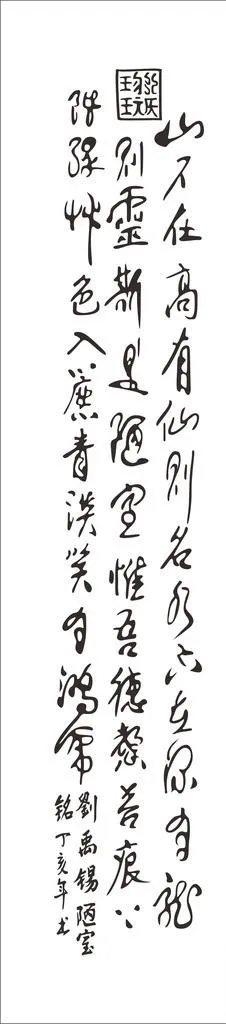 山不在高有仙則名水不在深有龍
則靈斯是陋室惟吾德馨苔痕上
階綠艸色入簾青談笑有鴻儒
劉禹錫陋室
銘丁亥年书